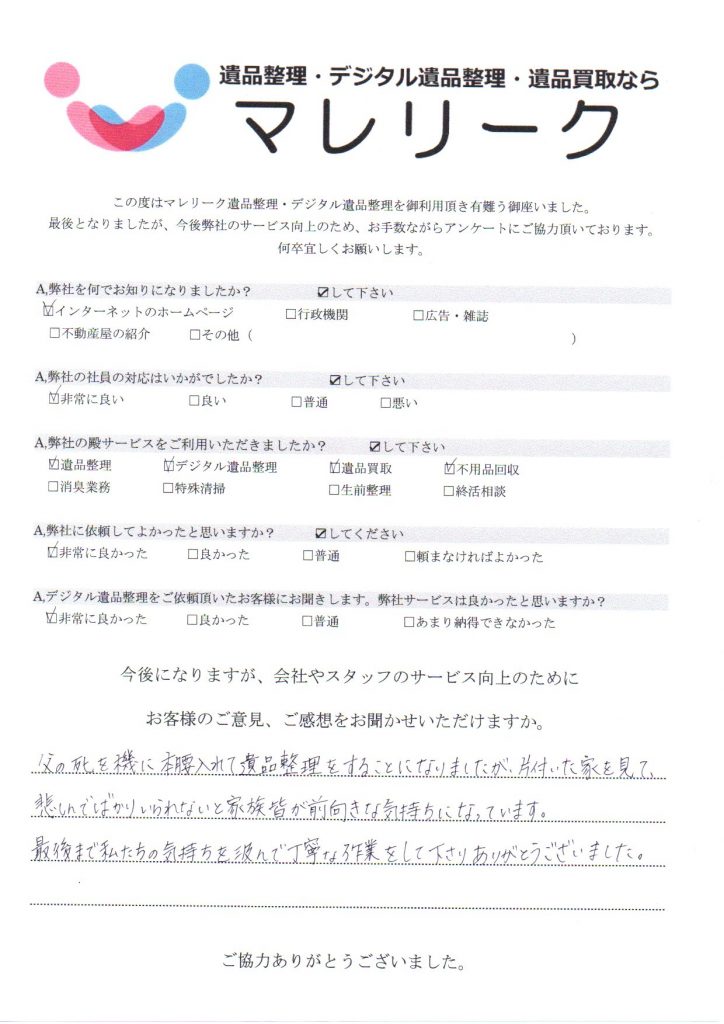 遺品整理・デジタル遺品整理・遺品買取なら
マレリーク
この度はマレリーク遺品整理・デジタル遺品整理を御利用頂き有難う御座いました。
最後となりましたが、今後弊社のサービス向上のため、お手数ながらアンケートにご協力頂いております。
何卒宜しくお願いします。
A,弊社を何でお知りになりましたか？ ☑して下さい
☑インターネットのホームページ □行政機関 □広告・雑誌
□不動産屋の紹介 □その他（ ）
A,弊社の社員の対応はいかがでしたか？ ☑して下さい
☑非常に良い □良い □普通 □悪い
A,弊社の殿サービスをご利用いただきましたか？ ☑して下さい
☑遺品整理 ☑デジタル遺品整理 ☑遺品買取 ☑不用品回収
□消臭業務 □特殊清掃 □生前整理 □終活相談
A,弊社に依頼してよかったと思いますか？ ☑してください
☑非常に良かった □良かった □普通 □頼まなければよかった
A,デジタル遺品整理をご依頼頂いたお客様にお聞きします。弊社サービスは良かったと思いますか？
☑非常に良かった □良かった □普通 □あまり納得できなかった
今後になりますが、会社やスタッフのサービス向上のために
お客様のご意見、ご感想をお聞かせいただけますか。
父の死を機に本腰入れて遺品整理をすることになりましたが、片付いた家を見て、
悲しんでばかりいられないと家族皆が前向きな気持ちになっています。
最後まで私たちの気持ちを汲んで丁寧な作業をして下さりありがとうございました。
ご協力ありがとうございました。